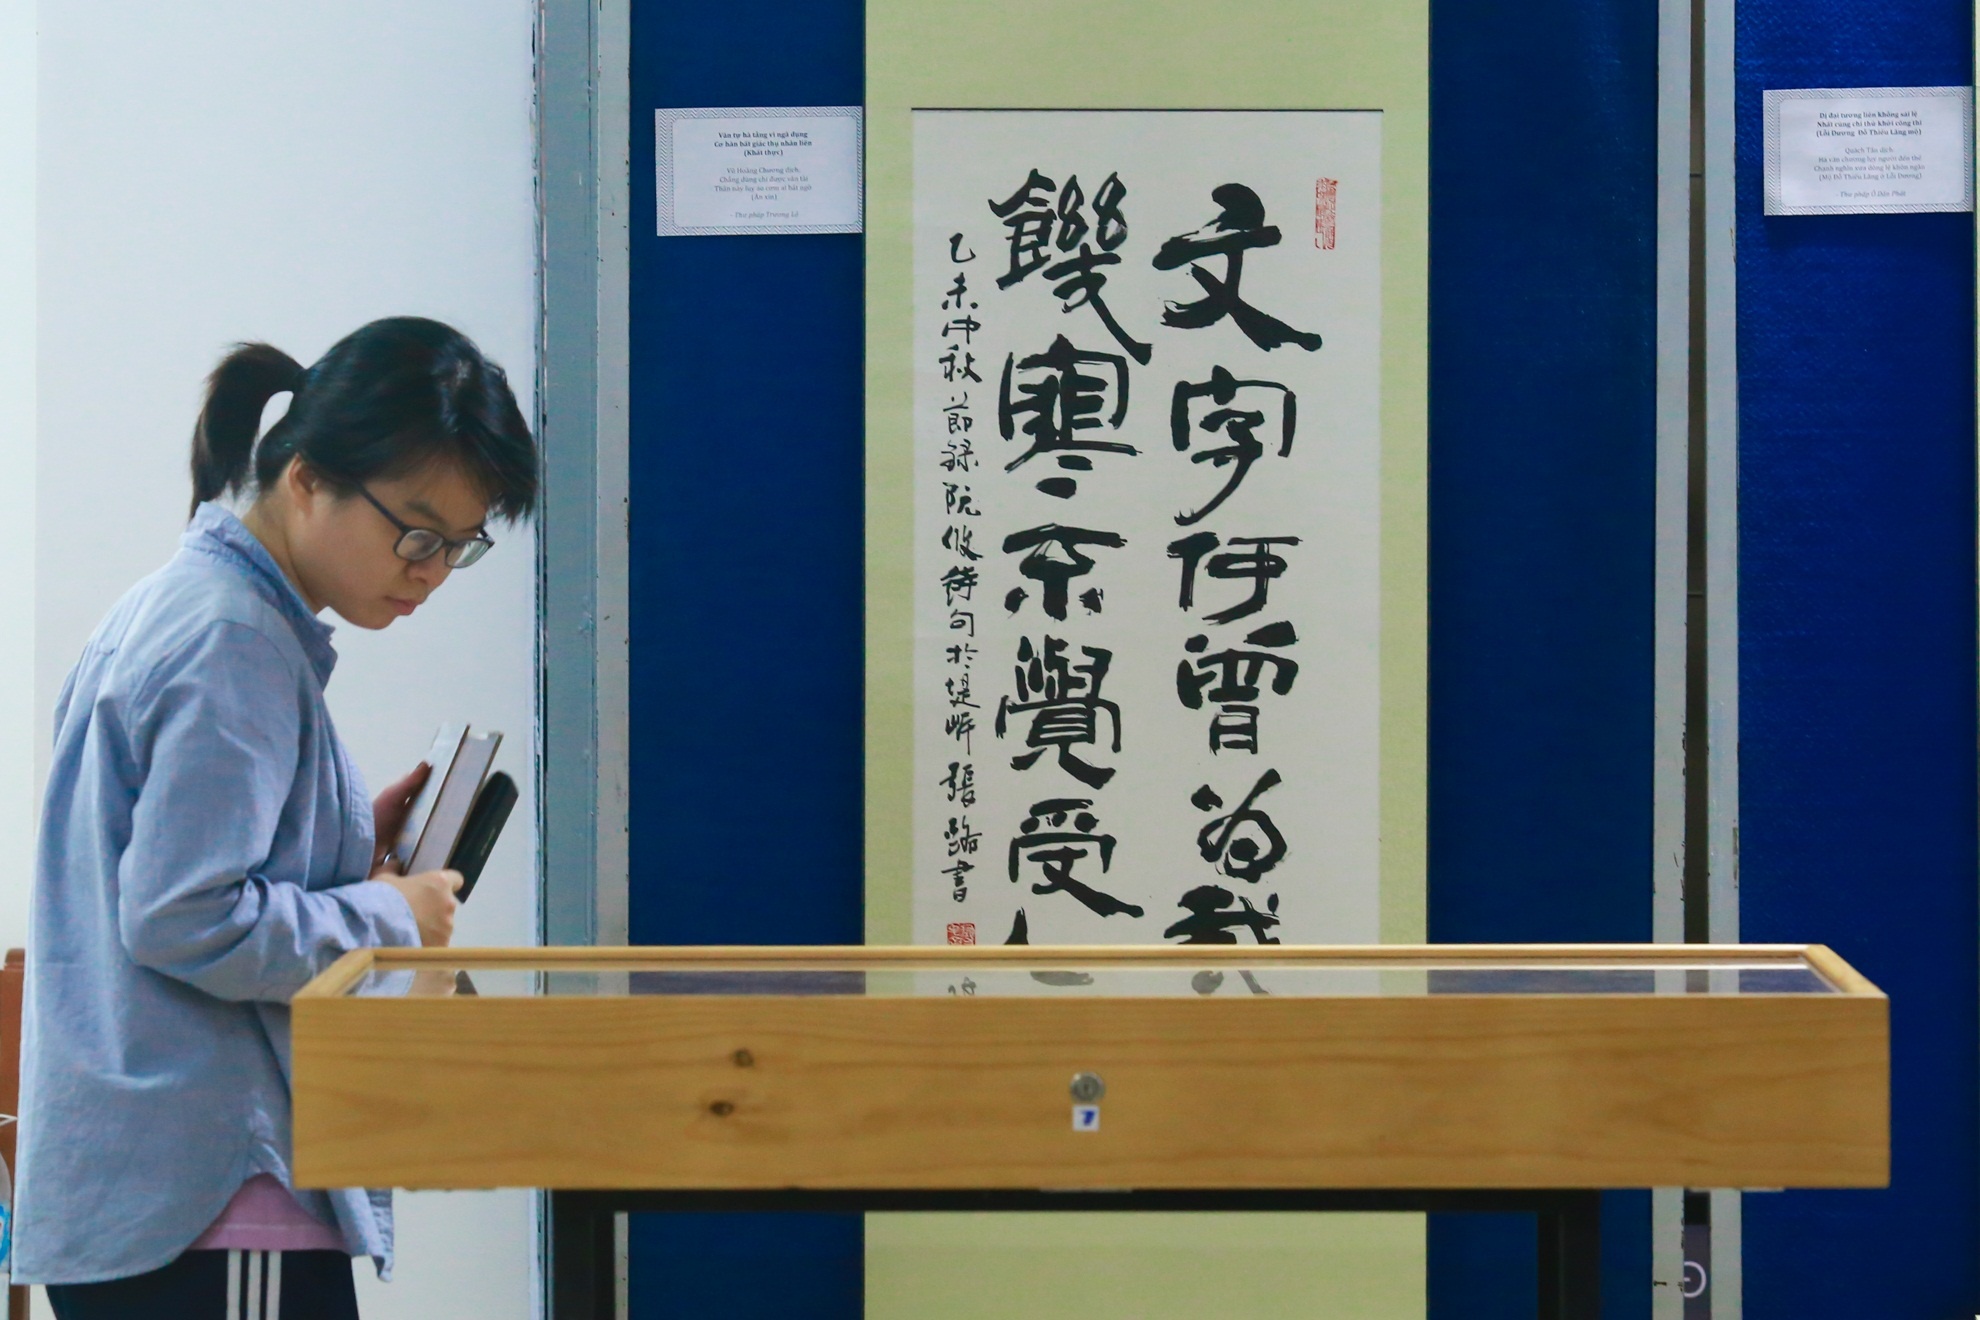 文字何曾為我
饑寒不覺受
乙未中秋節錄阮攸詩句於堤岸張路書
Văn tự hà tằng vi ngã dụng
Cơ hàn bất giác thụ nhân liên
(Khất thực)
Vũ Hoàng Chương dịch.
Chẳng dùng chi được văn tài
Thân này lụy áo cơm ai bất ngờ
(Ăn xin)
- Thư pháp Trương Lộ
Dị đại tương liên không sái lệ
Nhất cùng chí thử khởi công thi
(Lỗi Dương Đỗ Thiếu Lăng mộ)
Quách Tấn dịch.
Há văn chương lụy người đến thế
Chạnh nghìn xưa dòng lệ khôn ngăn
(Mộ Đỗ Thiếu Lăng ở Lỗi Dương)
7